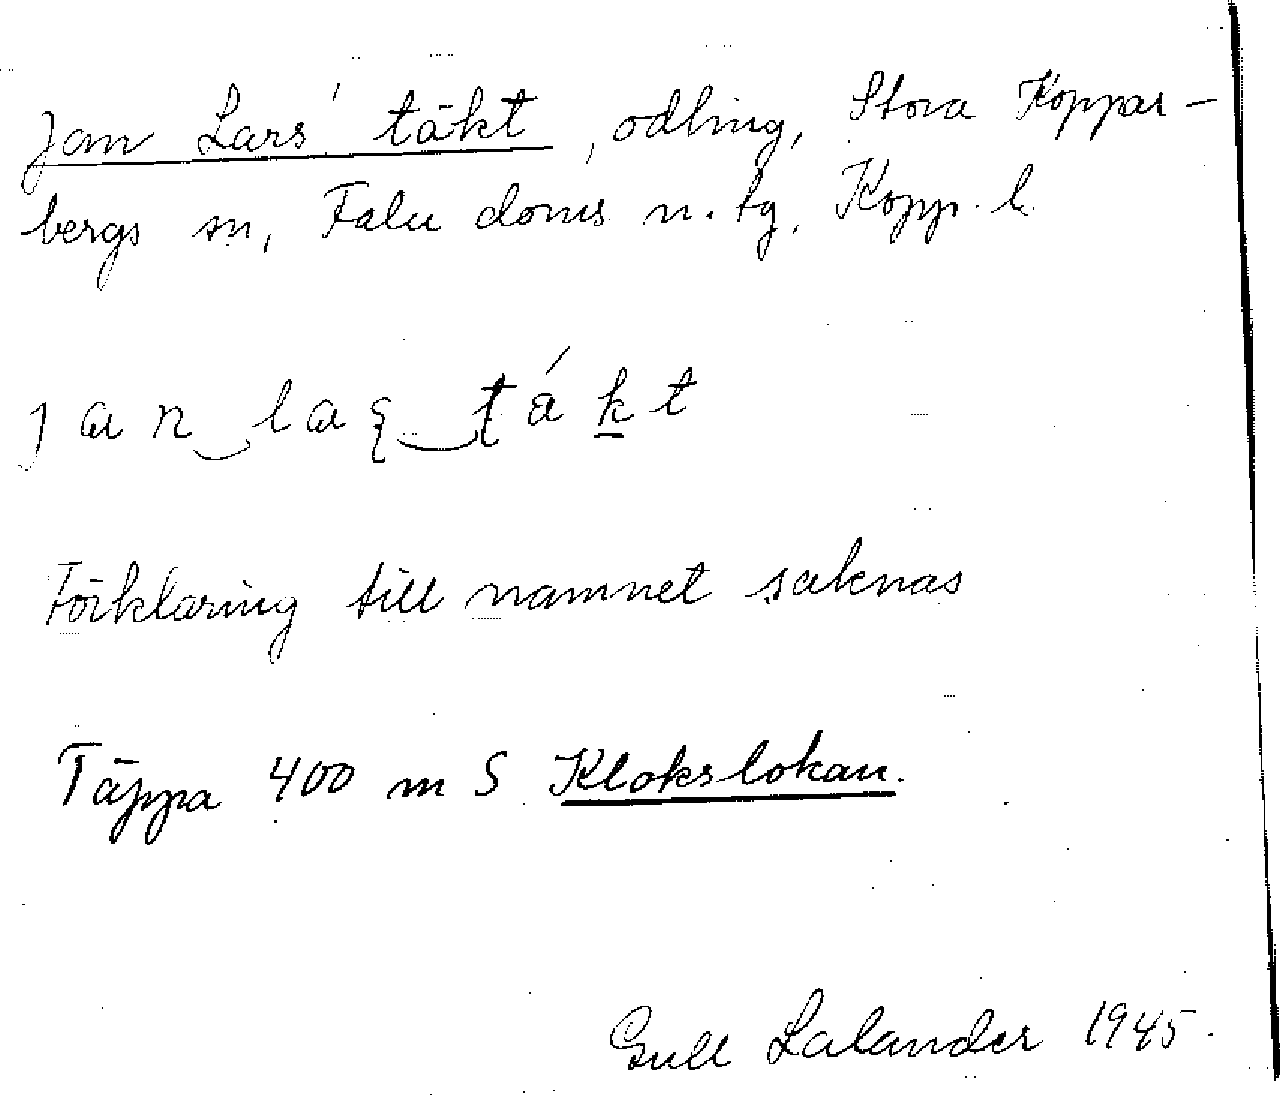 Jan Lars' täkt, odling, Stora Koppar-
bergs sn, Falu doms n. tg, Kopp. l.
jan laʂ tákt
Förklaring till namnet saknas
Täppa 400 m S Klokslokan.
Gull Lalander 1945.